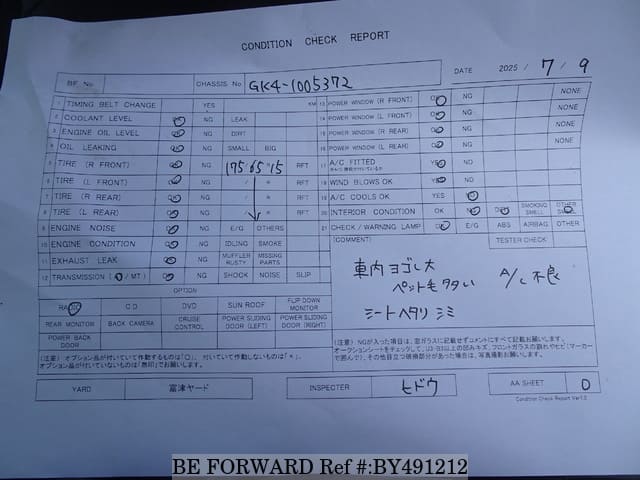 CONDITION CHECK REPORT
BF No CHASSIS No GK4-1005372 DATE 2025 / 7 / 9
1 TIMING BELT CHANGE YES KM
2 COOLANT LEVEL OK NG LEAK
3 ENGINE OIL LEVEL OK NG DIRT
4 OIL LEAKING OK NG SMALL BIG
5 TIRE (R FRONT) OK NG 175 65 15 RFT
6 TIRE (L FRONT) OK NG / R RFT
7 TIRE (R REAR) OK NG / R RFT
8 TIRE (L REAR) OK NG / R RFT
9 ENGINE NOISE OK NG E/G OTHERS
10 ENGINE CONDITION OK NG IDLING SMOKE
11 EXHAUST LEAK OK NG MUFFLER RUSTY MISSING PARTS
12 TRANSMISSION (A / MT) OK NG SHOCK NOISE SLIP
13 POWER WINDOW (R FRONT) OK NG NONE
14 POWER WINDOW (L FRONT) OK NG NONE
15 POWER WINDOW (R REAR) OK NG NONE
16 POWER WINDOW (L REAR) OK NG NONE
17 A/C FITTED YES NO
18 WIND BLOWS OK YES NO
19 A/C COOLS OK YES NO
20 INTERIOR CONDITION OK NG DIRTY SMOKING SMELL OTHER SMELL
21 CHECK / WARNING LAMP OK E/G ABS AIRBAG OTHER
TESTER CHECK
(COMMENT)
車内 ヨゴレ大
ペット毛 タタい A/C 不良
シートヘタリ シミ
OPTION
RADIO CD DVD SUN ROOF FLIP DOWN MONITOR
REAR MONITOR BACK CAMERA CRUISE CONTROL POWER SLIDING DOOR (LEFT) POWER SLIDING DOOR (RIGHT)
POWER BACK DOOR
(注意) オプション品が付いていて作動するものは「〇」、付いていて作動しないものは「×」、
オプション品が付いていないものは「無印」でお願いします。
(注意)NGが入った項目は、窓ガラスに記載せずコメントにすべて記載お願いします。
YARD 富津ヤード INSPECTER ヒドウ AA SHEET 0
Condition Check Report Ver1.0
BE FORWARD Ref #:BY491212